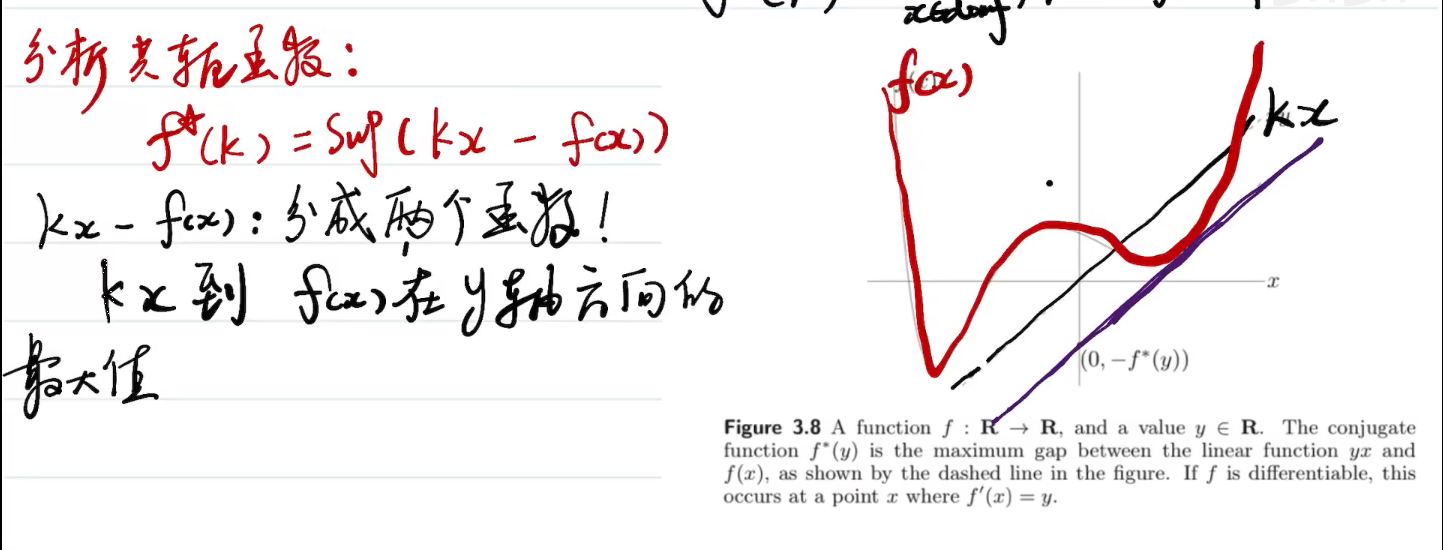 x∈domf
分析共轭函数:
f*(k) = Sup(kx - f(x))
kx - f(x): 分成两个函数!
kx 到 f(x) 在 y轴方向的
最大值
f(x)
kx
x
(0, −f*(y))
Figure 3.8 A function f : R → R, and a value y ∈ R. The conjugate
function f*(y) is the maximum gap between the linear function yx and
f(x), as shown by the dashed line in the figure. If f is differentiable, this
occurs at a point x where f′(x) = y.